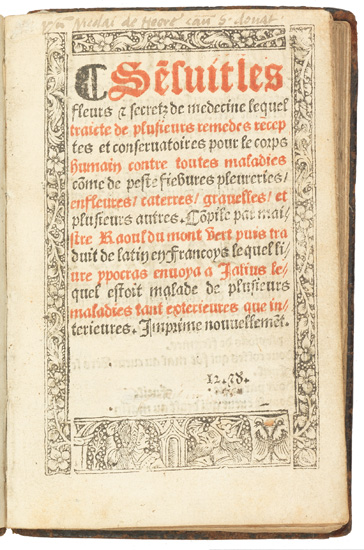 de
¶ Sẽsuit les
fleurs & secretz de medecine lequel
traicte de plusieurs remedes recep
tes et conseruatoires pour le corps
humain contre toutes maladies
cõme de peste fiebures pleureries/
enfleures/ caterres/ grauelles/ et
plusieurs autres. Cõpile par mai/
stre Raoul du mont Vert puis tra
duit de latin en Francoys lequel li/
ure ypocras enuoya a Jalius le/
quel estoit malade de plusieurs
maladies tant exterieures que in/
terieures. Imprime nouuellemẽt.